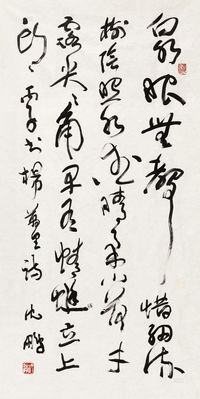 泉眼無聲惜細流
樹陰照水愛晴柔小荷才
露尖々角早有蜻蜓立上
頭丙子書楊萬里詩沈鵬